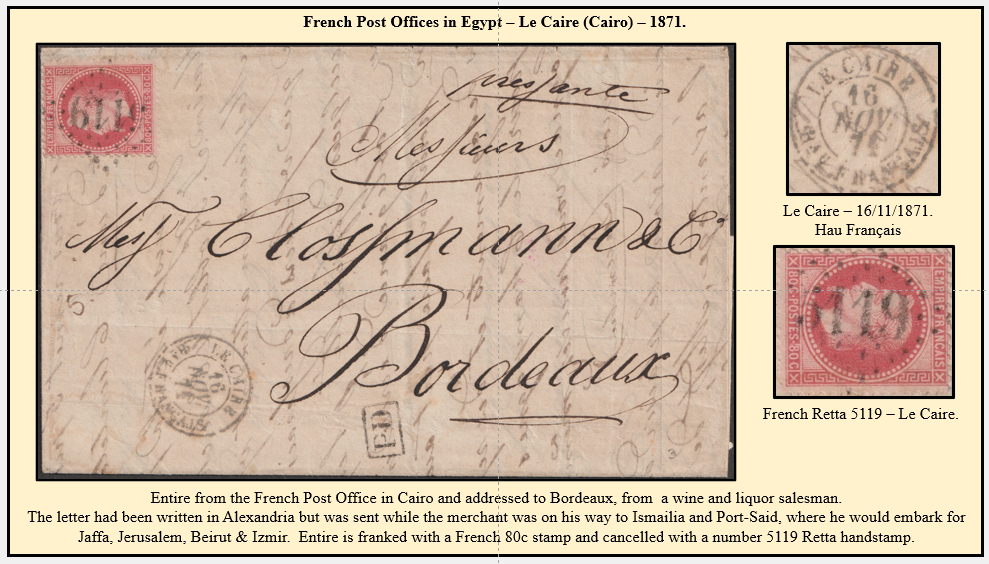 French Post Offices in Egypt – Le Caire (Cairo) – 1871.
pressante
Messieurs
Mess Clossmann & Cie
Bordeaux
5
LE CAIRE
16
NOV
71
PD
3
LE CAIRE
16
NOV.
71
Bau FRANÇAIS
Le Caire – 16/11/1871.
Hau Français
5119
EMPIRE FRANÇAIS
80C·POSTES·80C
119
80C·POSTES·80C
EMPIRE FRANÇAIS
French Retta 5119 – Le Caire.
Entire from the French Post Office in Cairo and addressed to Bordeaux, from a wine and liquor salesman.
The letter had been written in Alexandria but was sent while the merchant was on his way to Ismailia and Port-Said, where he would embark for
Jaffa, Jerusalem, Beirut & Izmir. Entire is franked with a French 80c stamp and cancelled with a number 5119 Retta handstamp.